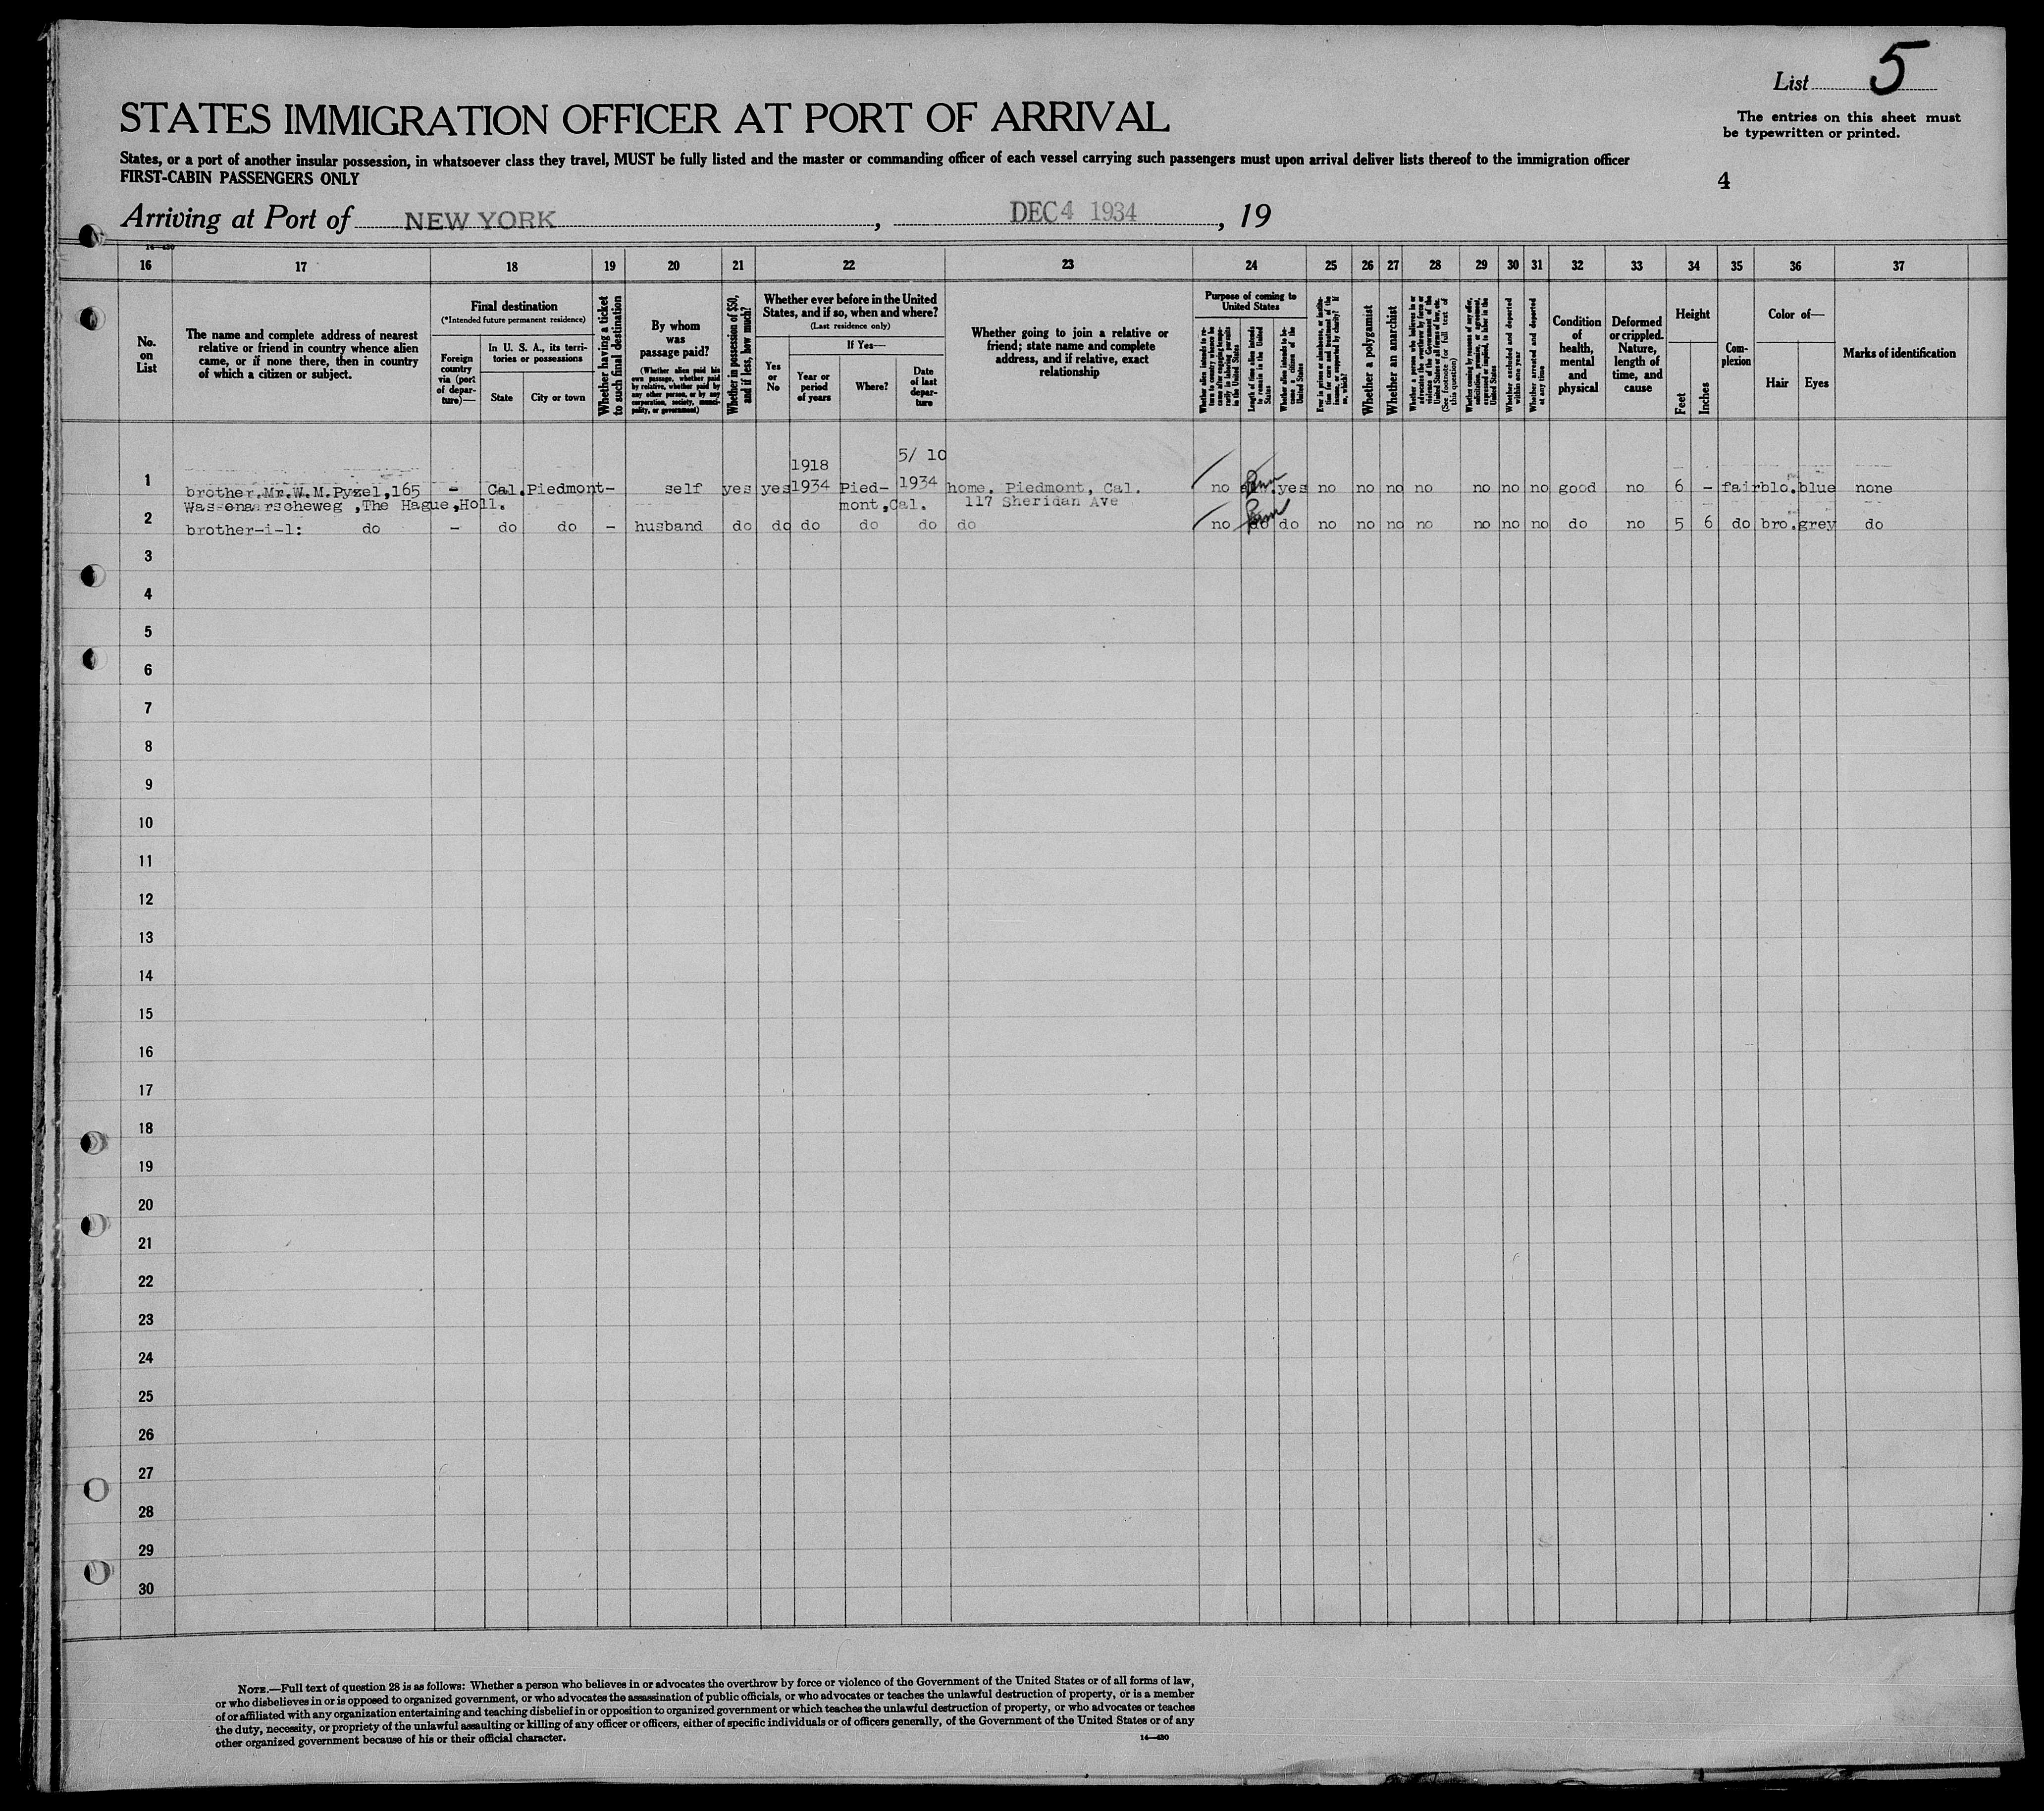 List 5
The entries on this sheet must
be typewritten or printed.
STATES IMMIGRATION OFFICER AT PORT OF ARRIVAL
States, or a port of another insular possession, in whatsoever class they travel, MUST be fully listed and the master or commanding officer of each vessel carrying such passengers must upon arrival deliver lists thereof to the immigration officer
FIRST-CABIN PASSENGERS ONLY
4
Arriving at Port of NEW YORK, DEC 4 1934, 19
16 17 18 19 20 21 22 23 24 25 26 27 28 29 30 31 32 33 34 35 36 37
No.
on
List
The name and complete address of nearest
relative or friend in country whence alien
came, or if none there, then in country
of which a citizen or subject.
Final destination
(*Intended future permanent residence)
Foreign
country
via (port
of depar-
ture)—
In U. S. A., its terri-
tories or possessions
State
City or town
Whether having a ticket
to such final destination
By whom
was
passage paid?
(Whether alien paid his
own passage, whether paid
by relative, whether paid by
any other person, or by any
corporation, society, munici-
pality, or government)
Whether in possession of $50,
and if less, how much?
Whether ever before in the United
States, and if so, when and where?
(Last residence only)
Yes
or
No
If Yes—
Year or
period
of years
Where?
Date
of last
depar-
ture
Whether going to join a relative or
friend; state name and complete
address, and if relative, exact
relationship
Purpose of coming to
United States
Length of time alien intends
to remain in the United
States
Whether alien intends to be-
come a citizen of the
United States
Whether a polygamist
Whether an anarchist
Whether excluded and deported
within one year
Whether arrested and deported
at any time
Condition
of
health,
mental
and
physical
Deformed
or crippled.
Nature,
length of
time, and
cause
Height
Feet
Inches
Com-
plexion
Color of—
Hair
Eyes
Marks of identification
1918 5/ 10
1 brother.Mr.W.M.Pyzel,165 – Cal. Piedmont – self yes yes 1934 Pied- 1934 home. Piedmont, Cal. no yes no no no no no no no good no 6 – fair blo. blue none
Wassenaarscheweg ,The Hague,Holl. mont,Cal. 117 Sheridan Ave
2 brother-i-l: do – do do – husband do do do do do do no do do no no no no no no no do no 5 6 do bro. grey do
3
4
5
6
7
8
9
10
11
12
13
14
15
16
17
18
19
20
21
22
23
24
25
26
27
28
29
30
NOTE.—Full text of question 28 is as follows: Whether a person who believes in or advocates the overthrow by force or violence of the Government of the United States or of all forms of law,
or who disbelieves in or is opposed to organized government, or who advocates the assassination of public officials, or who advocates or teaches the unlawful destruction of property, or is a member
of or affiliated with any organization entertaining and teaching disbelief in or opposition to organized government or which teaches the unlawful destruction of property, or who advocates or teaches
the duty, necessity, or propriety of the unlawful assaulting or killing of any officer or officers, either of specific individuals or of officers generally, of the Government of the United States or of any
other organized government because of his or their official character.
14—430